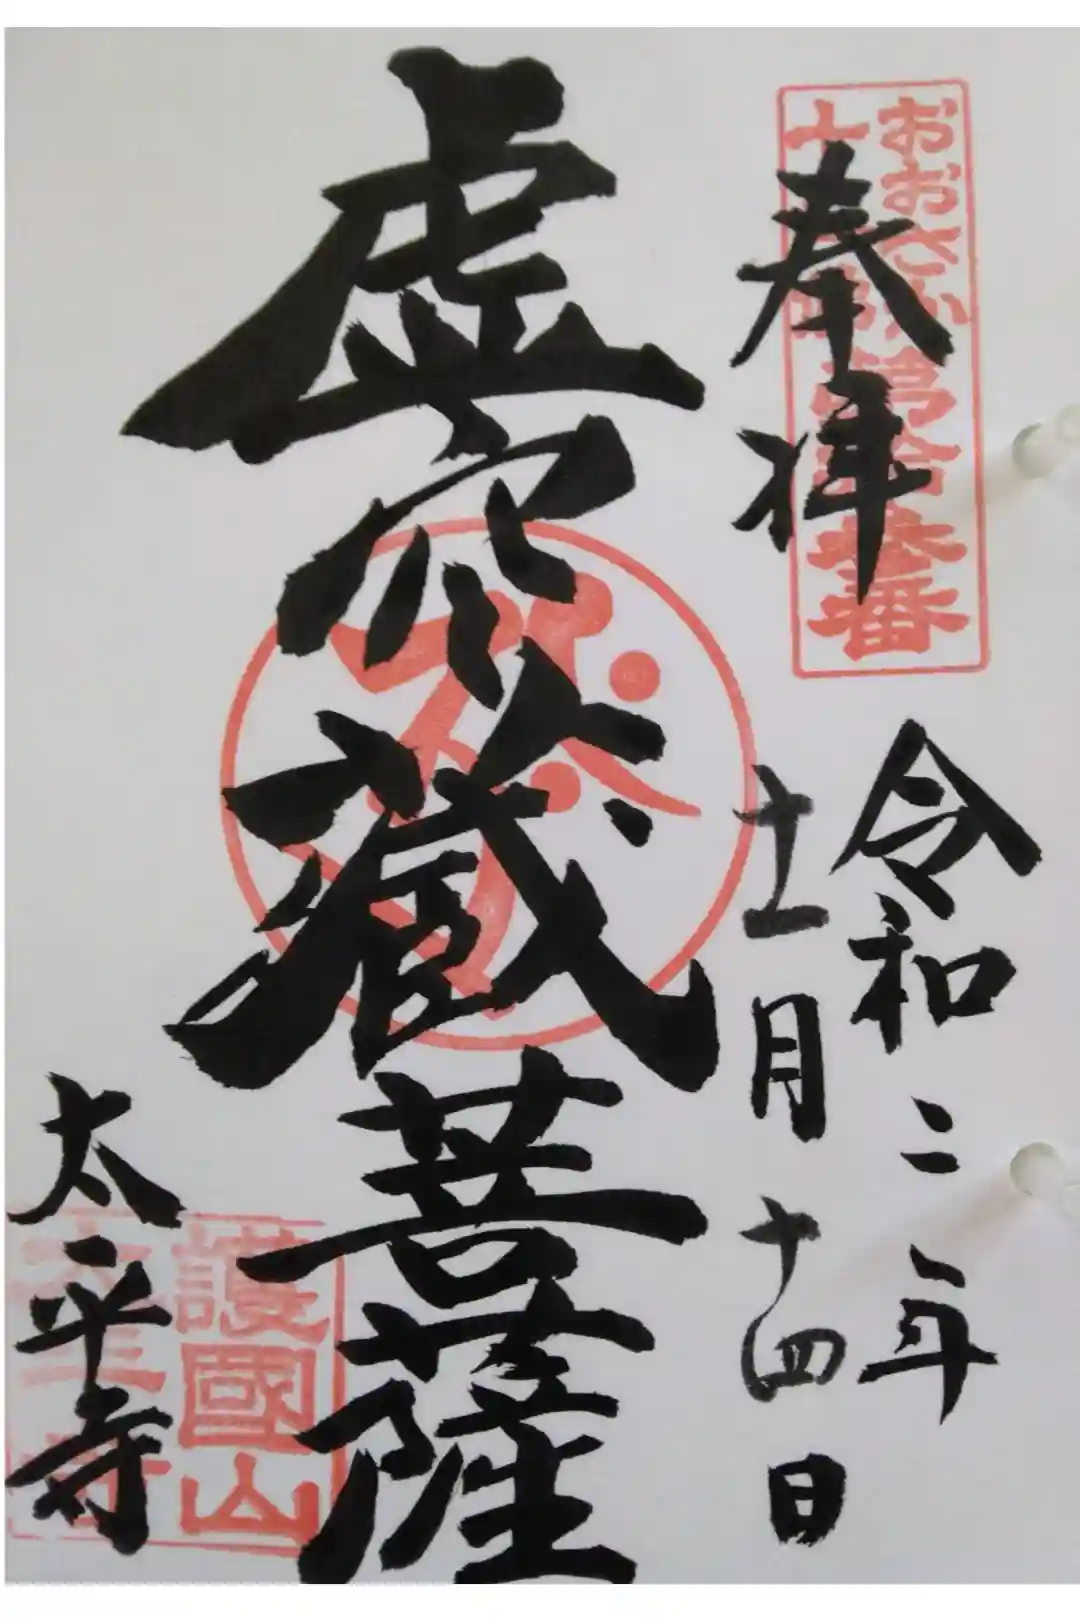 おおさか
十三佛第拾叁番
奉拝
令和二年
十一月十四日
虚空蔵菩薩
護國山
太平寺
太平寺